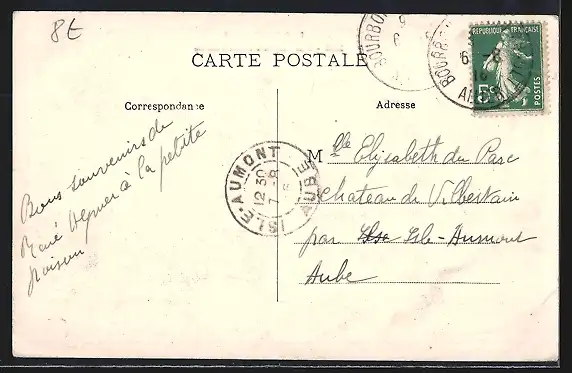 8€
CARTE POSTALE
BOURBO
BOURB
6
8
RÉPUBLIQUE FRANÇAISE
5c
POSTES
Correspondance
Adresse
Bons souvenirs de
René Wagner à la petite
ISLE-AUMONT
AUBE
12 30
7-8
Mlle Elisabeth du Parc
Chateau de Villebertain
par Isle-Aumont
Aube